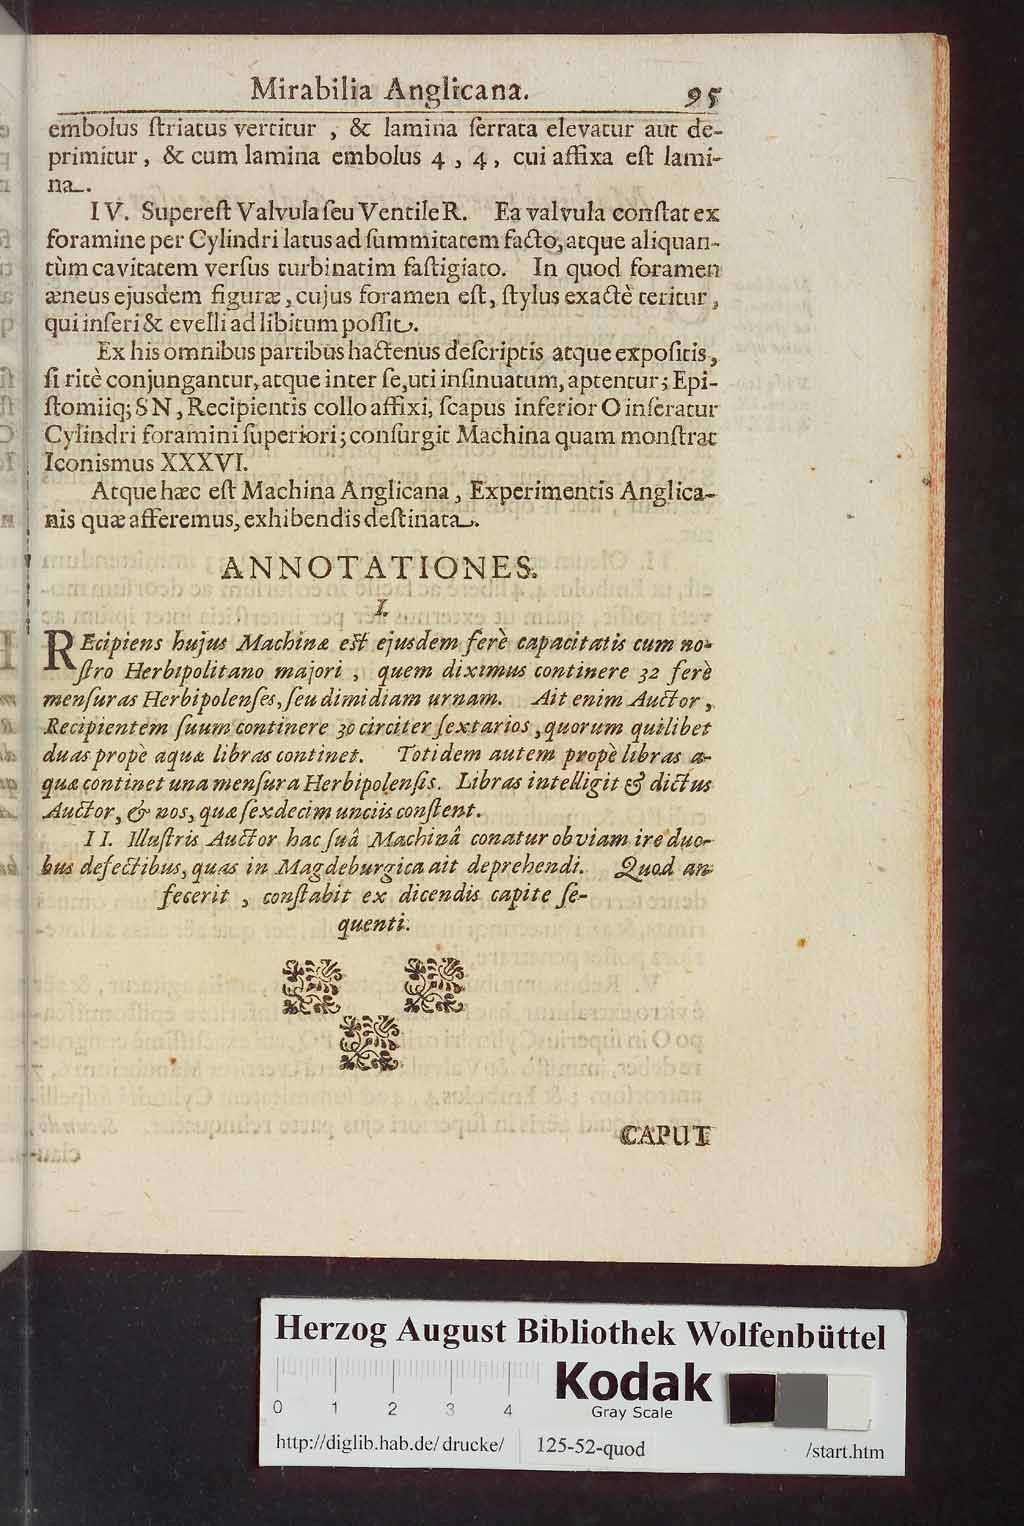 Mirabilia Anglicana. 95
embolus ſtriatus vertitur , & lamina ferrata elevatur aut de-
primitur, & cum lamina embolus 4 , 4, cui affixa eſt lami-
na.
IV. Supereſt Valvula ſeu Ventile R. Ea valvula conſtat ex
foramine per Cylindri latus ad ſummitatem facto, atque aliquan-
tùm cavitatem verſus turbinatim faſtigiato. In quod foramen
æneus ejusdem figuræ, cujus foramen eſt, ſtylus exactè teritur,
qui inſeri & evelli ad libitum poſſit.
Ex his omnibus partibus hactenus deſcriptis atque expoſitis,
ſi ritè conjungantur, atque inter ſe, uti inſinuatum, aptentur; Epi-
ſtomiiq; SN, Recipientis collo affixi, ſcapus inferior O inſeratur
Cylindri foramini ſuperiori; conſurgit Machina quam monſtrat
Iconismus XXXVI.
Atque hæc eſt Machina Anglicana, Experimentis Anglica-
nis quæ afferemus, exhibendis deſtinata.
ANNOTATIONES.
I.
REcipiens hujus Machinæ eſt ejusdem ferè capacitatis cum no-
ſtro Herbipolitano majori , quem diximus continere 32 ferè
menſuras Herbipolenſes, ſeu dimidiam urnam. Ait enim Auctor,
Recipientem ſuum continere 30 circiter ſextarios, quorum quilibet
duas propè aquæ libras continet. Totidem autem propè libras a-
quæ continet una menſura Herbipolenſis. Libras intelligit & dictus
Auctor, & nos, quæ ſexdecim unciis conſtent.
II. Illuſtris Auctor hac ſuâ Machinâ conatur obviam ire duo-
bus defectibus, quas in Magdeburgica ait deprehendi. Quod an
fecerit , conſtabit ex dicendis capite ſe-
quenti.
CAPUT
Herzog August Bibliothek Wolfenbüttel
0 1 2 3 4
Kodak
Gray Scale
http://diglib.hab.de/drucke/ 125-52-quod /start.htm